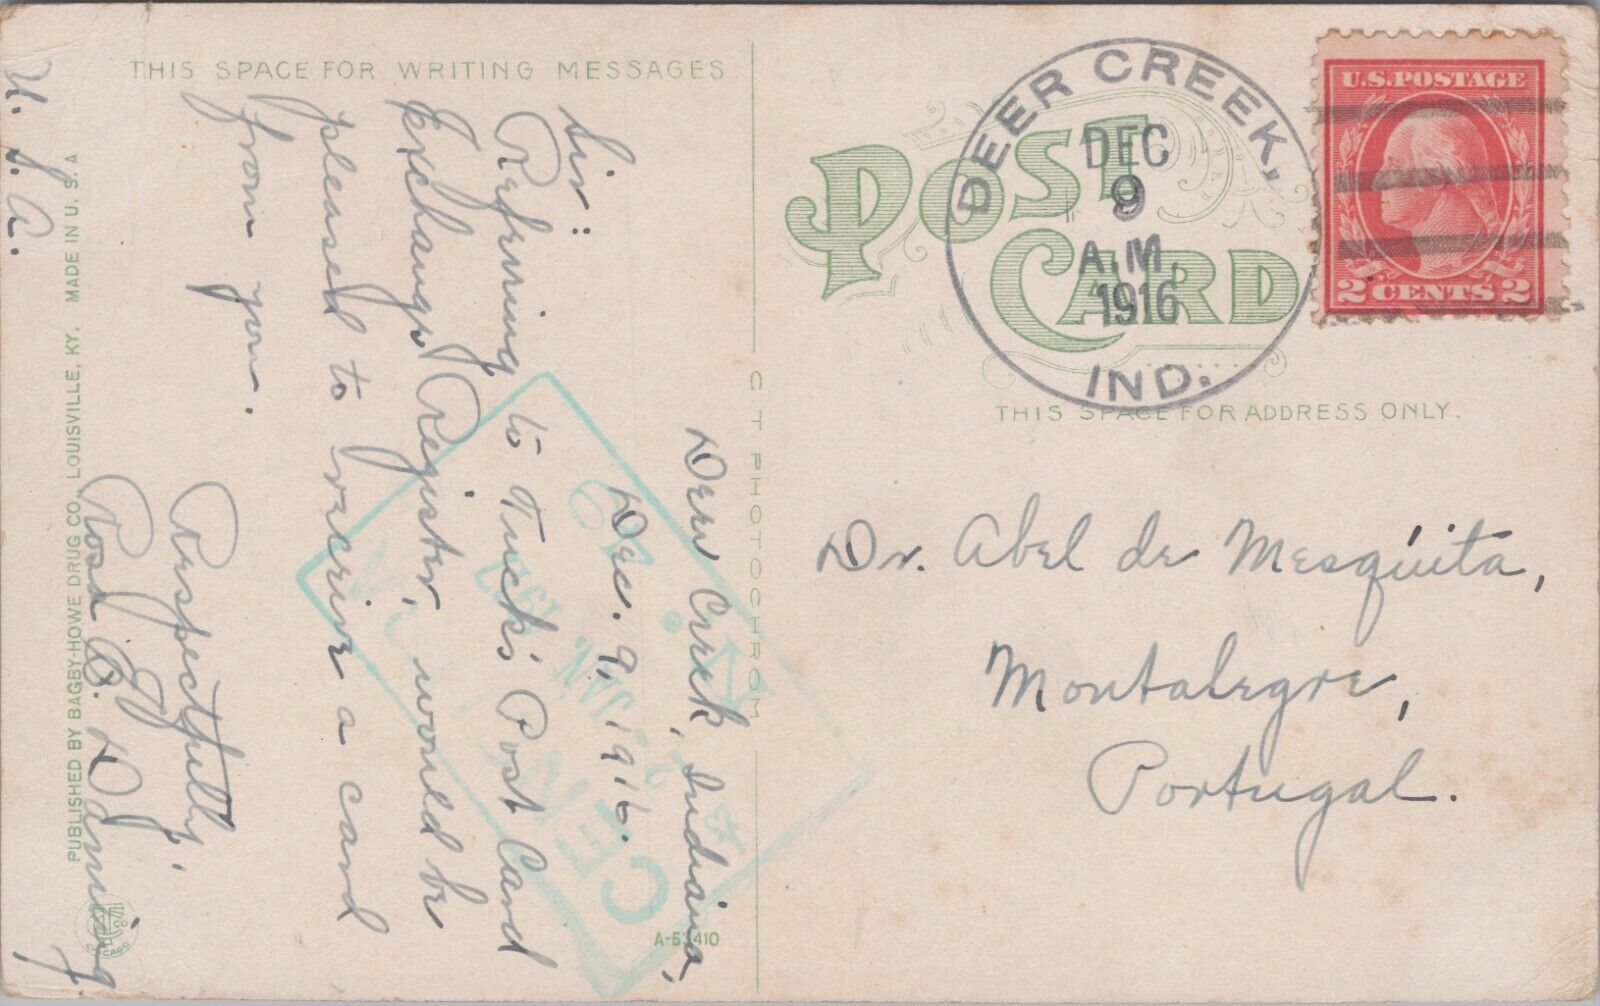 THIS SPACE FOR WRITING MESSAGES
Deer Creek, Indiana,
Dec. 9, 1916.
Sir:
Referring to Tuck's Post Card
Exchange Register, would be
pleased to receive a card
from you.
Respectfully,
Rosa E. Deming
U. S. A.
PUBLISHED BY BAGBY-HOWE DRUG CO., LOUISVILLE, KY. MADE IN U. S. A
CHICAGO
A-53410
C. T. PHOTOCHROM
POST
CARD
DEER CREEK,
DEC
9
A.M.
1916
IND.
U.S. POSTAGE
2 CENTS 2
THIS SPACE FOR ADDRESS ONLY.
Dr. Abel de Mesquita,
Montalegre,
Portugal.